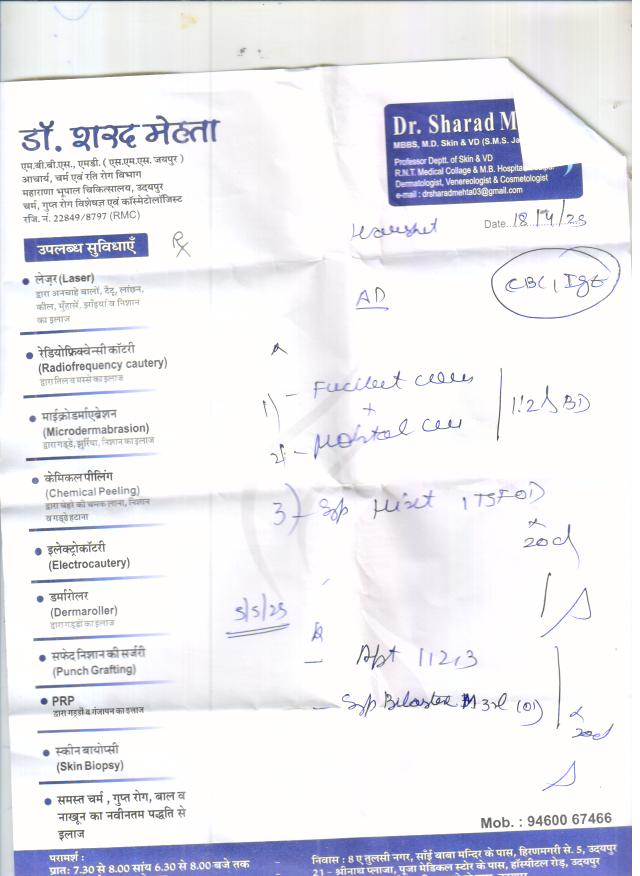 डॉ. शरद मेहता
एम.बी.बी.एस., एमडी. (एस.एम.एस. जयपुर)
आचार्य, चर्म एवं रति रोग विभाग
महाराणा भूपाल चिकित्सालय, उदयपुर
चर्म, गुप्त रोग विशेषज्ञ एवं कॉस्मेटोलॉजिस्ट
रजि. नं. 22849/8797 (RMC)
Dr. Sharad M
MBBS, M.D. Skin & VD (S.M.S. Ja
Professor Deptt. of Skin & VD
R.N.T. Medical Collage & M.B. Hospital
Dermatologist, Venereologist & Cosmetologist
e-mail : drsharadmehta03@gmail.com
Date 18/4/25
उपलब्ध सुविधाएँ
लेज़र (Laser)
द्वारा अनचाहे बालों, टैटू, लांछन,
कील, मुँहासें, झाँइयां व निशान
का इलाज
रेडियोफ्रिक्वेन्सी कॉटरी
(Radiofrequency cautery)
द्वारा तिल व मस्से का इलाज
माईक्रोडर्माएब्रेशन
(Microdermabrasion)
द्वारा गड्डे, झुर्रिया, निशान का इलाज
केमिकल पीलिंग
(Chemical Peeling)
द्वारा चेहरे की चमक लाना, निशान
व गड्डे हटाना
इलेक्ट्रोकॉटरी
(Electrocautery)
डर्मारोलर
(Dermaroller)
द्वारा गड्डों का इलाज
सफेद निशान की सर्जरी
(Punch Grafting)
PRP
द्वारा गड्डों व गंजापन का इलाज
स्कीन बायोप्सी
(Skin Biopsy)
समस्त चर्म, गुप्त रोग, बाल व
नाखून का नवीनतम पद्धति से
इलाज
Rx
AD
CBC, IgE
1) -
+
2) -
1:2 BD
3) - Syp 1TSF OD
x 20d
5/5/25
- Rpt 1,2,3
- Syp (OD)
x 20d
Mob. : 94600 67466
परामर्श :
प्रात: 7.30 से 8.00 सांय 6.30 से 8.00 बजे तक
निवास : 8 ए तुलसी नगर, साँई बाबा मन्दिर के पास, हिरणमगरी से. 5, उदयपुर
21 - श्रीनाथ प्लाजा, पूजा मेडिकल स्टोर के पास, हॉस्पीटल रोड़, उदयपुर